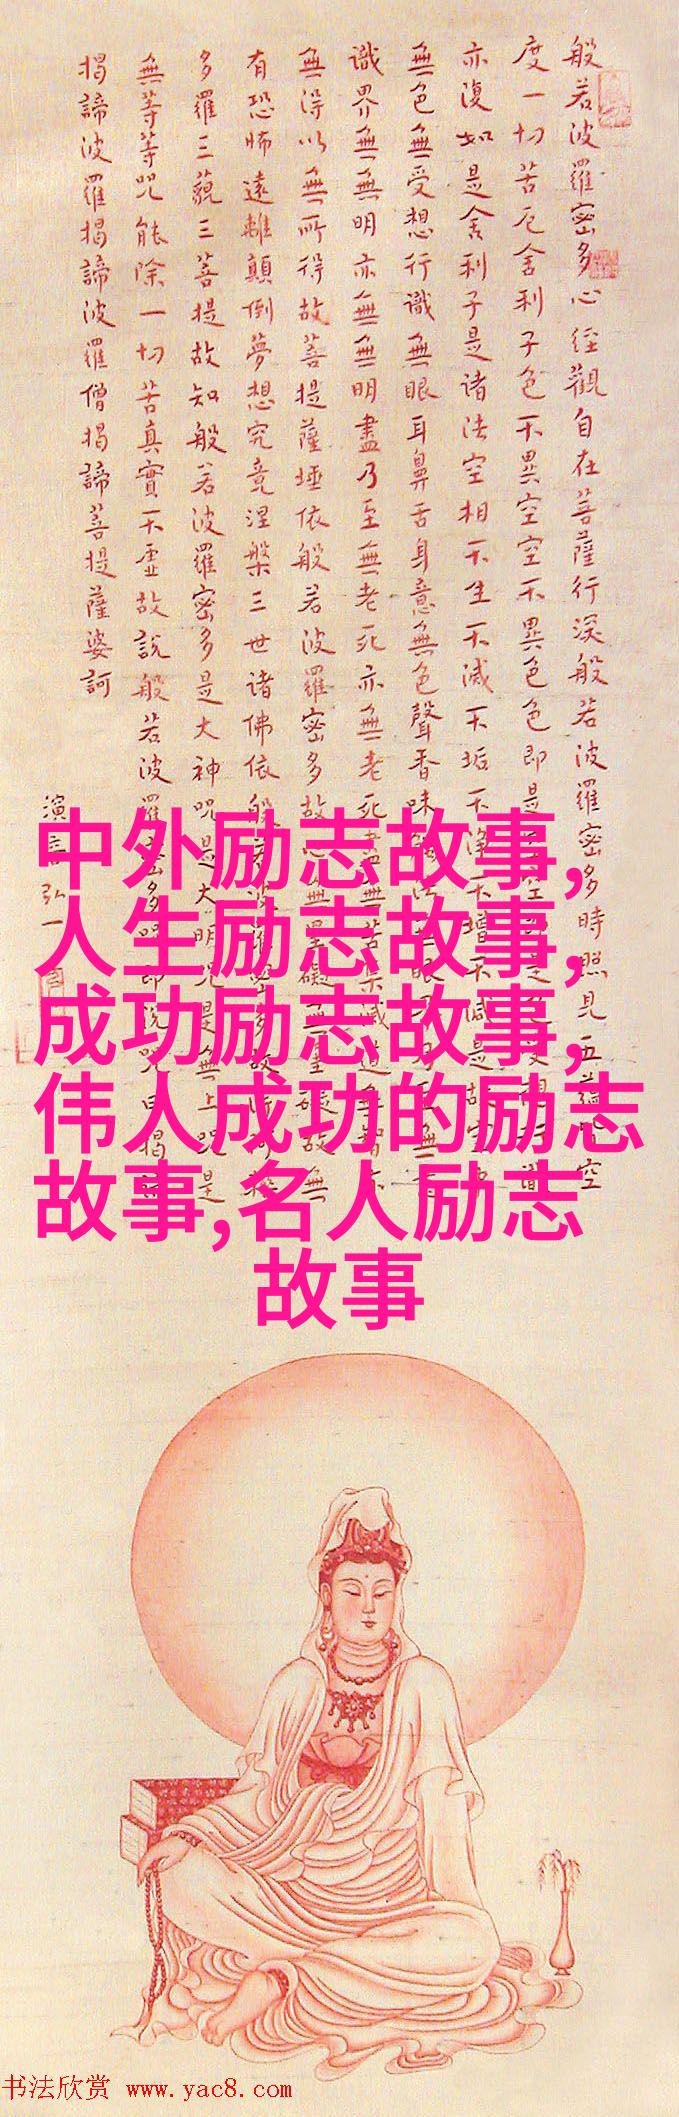 般若波羅密多心經觀自在菩薩行深般若波羅密多時照見五蘊皆空
度一切苦厄舍利子色不異空空不異色色即是
亦復如是舍利子是諸法空相不生不滅不垢不淨不增不減是故空中
無色無受想行識無眼耳鼻舌身意無色聲香味
識界無無明亦無無明盡乃至無老死亦無老死盡無苦集滅道無智亦
無得以無所得故菩提薩埵依般若波羅密多故心無罣礙無罣礙故無
有恐怖遠離顛倒夢想究竟涅槃三世諸佛依般
多羅三藐三菩提故知般若波羅密多是大神咒是大明咒是無上咒是
無等等咒能除一切苦真實不虛故說般若波羅密多咒即說咒曰揭諦
揭諦波羅揭諦波羅僧揭諦菩提薩婆訶
演音弘一
中外励志故事,
人生励志故事,
成功励志故事,
伟人成功的励志
故事,名人励志
故事
书法欣赏 www.yac8.com